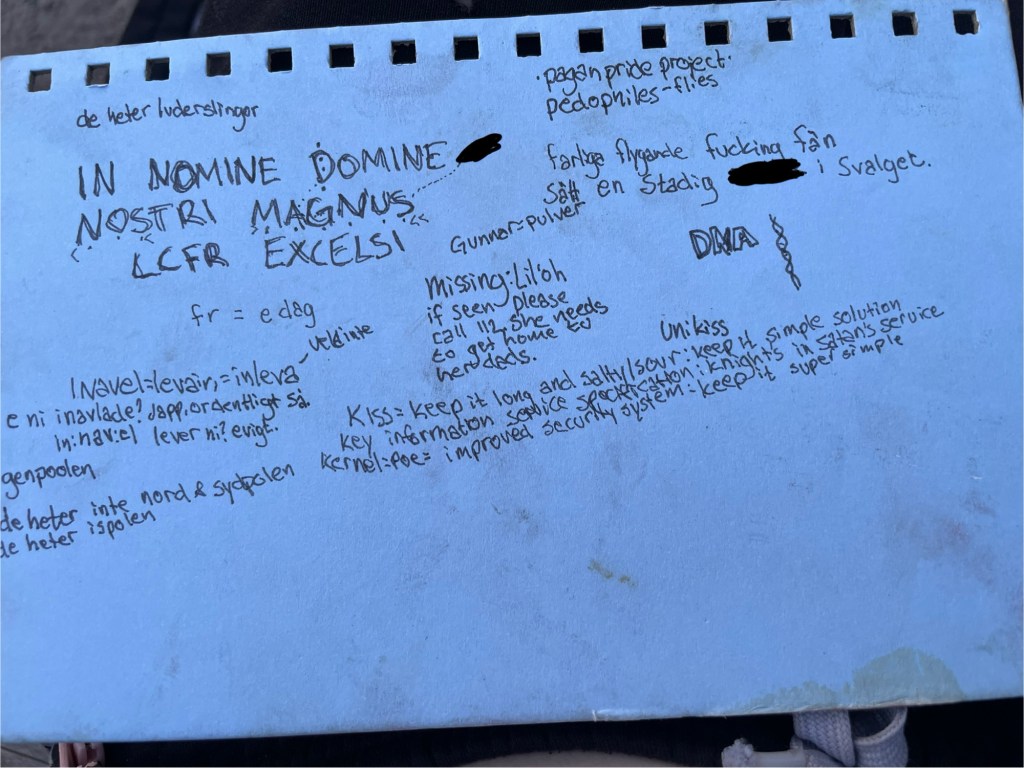 de heter luderslingor
IN NOMINE DOMINE
NOSTRI MAGNUS
LCFR EXCELSI
fr = e dag
•pagan pride project•
pedophiles-flies
farliga flygande fucking fån
Sätt en Stadig i Svalget.
Gunnar=pulver
DNA
missing: Lil'oh
if seen, please
call 112, she needs
to get home to
her dads.
Veld inte
INavel=levain,=inleva
e ni inavlade? Japp. ordentligt så
in:nav:el lever ni? evigt.
genpoolen
de heter inte nord & sydpolen
de heter ispolen
Unikiss
Kiss= keep it long and salty/sour: keep it simple solution
key information service specification: knights in satan's service
Kernel:Poe= improved security system= keep it super simple